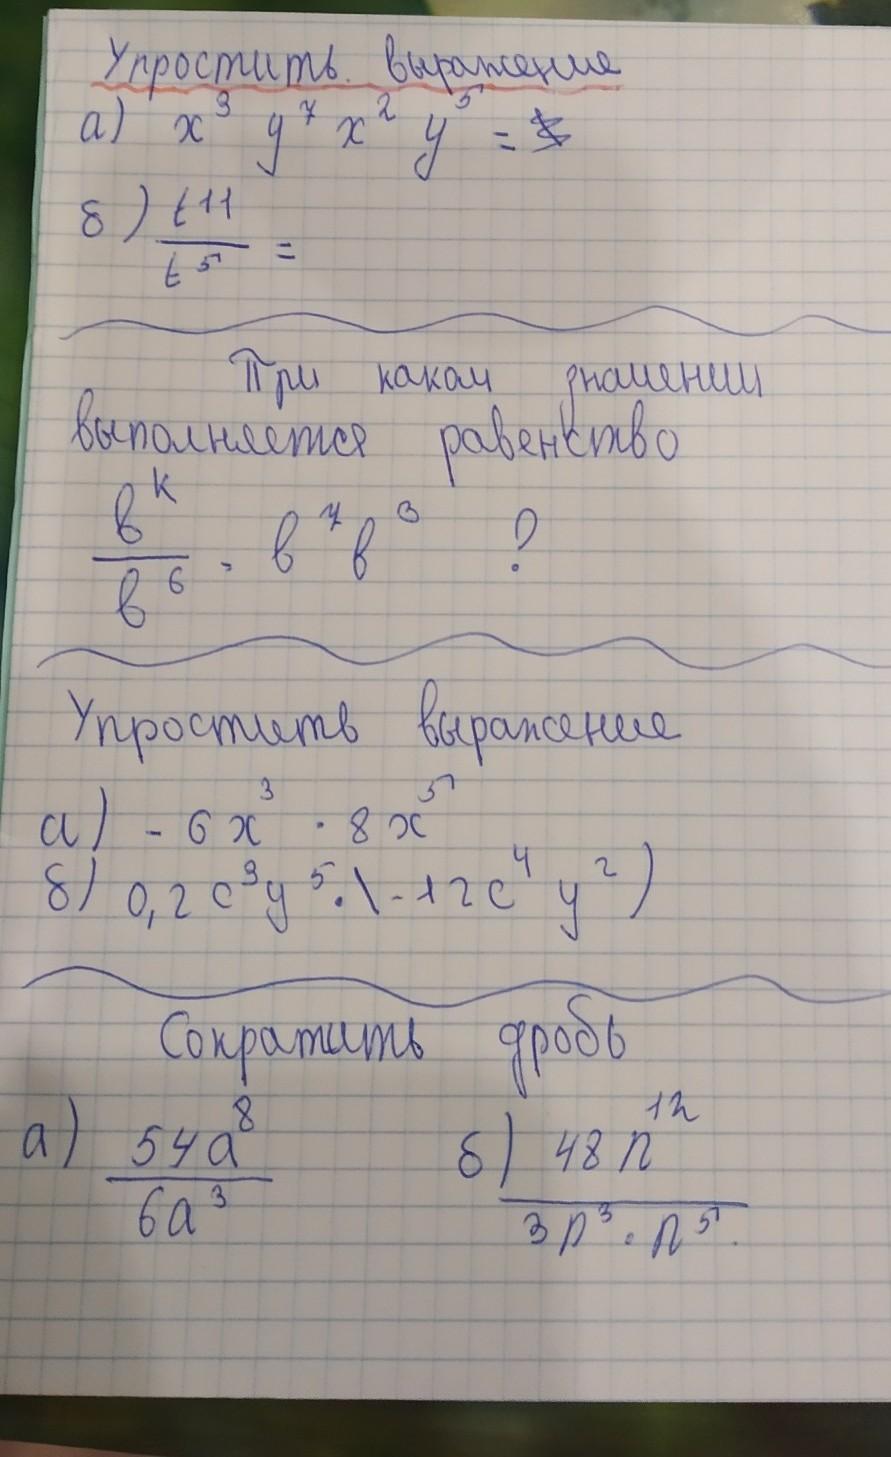 Упростить выражение
а) x³ y⁷ x² y⁵ =
б) t11/t⁵ =
При каком значении
выполняется равенство
в^к/в⁶ = в⁷в³ ?
Упростить выражение
а) - 6x³ · 8x⁵
б) 0,2c³y⁵·(-12c⁴ y²)
Сократить дробь
а) 54a⁸/6a³ б) 48n¹²/3n³·n⁵